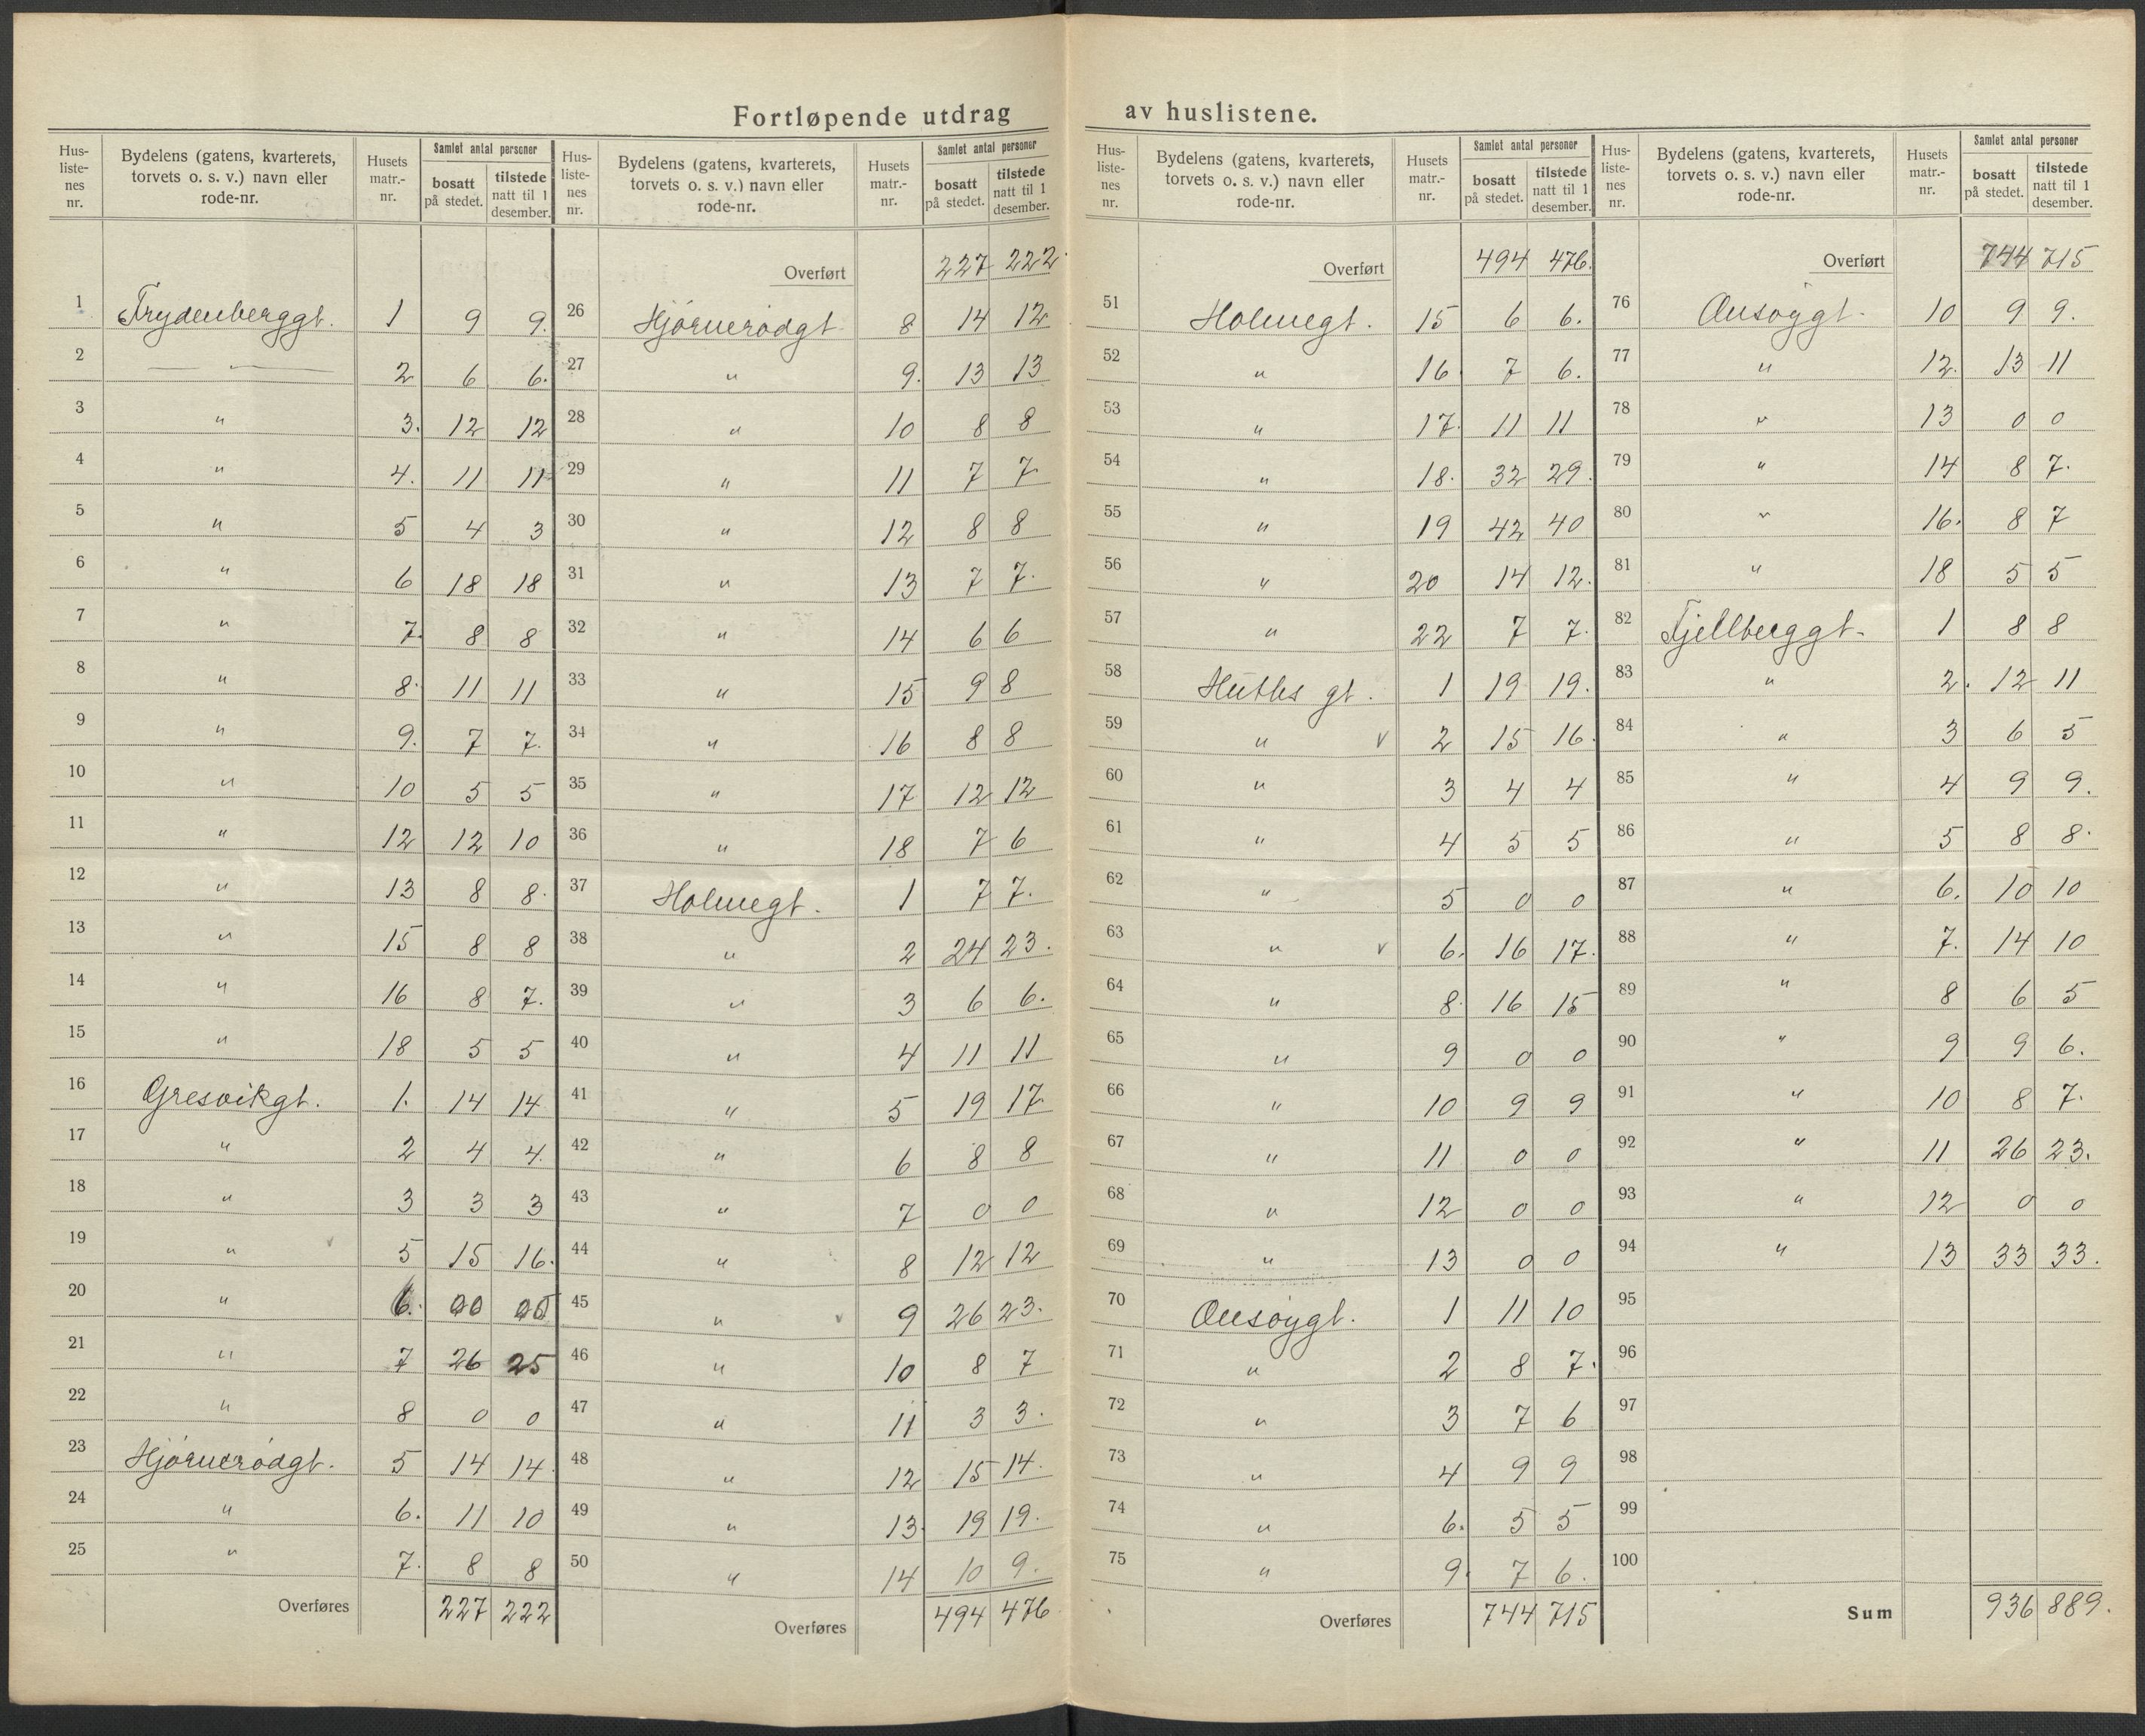 Fortløpende utdrag av huslistene.
Hus-liste-nes nr. | Bydelens (gatens, kvarterets, torvets o. s. v.) navn eller rode-nr. | Husets matr.-nr. | Samlet antal personer bosatt på stedet. | tilstede natt til 1 desember.
1 Frydenberggt. 1 9 9.
2 — " — 2 6 6.
3 " 3. 12 12
4 " 4. 11 11
5 " 5 4 3
6 " 6 18 18
7 " 7. 8 8
8 " 8. 11 11
9 " 9. 7 7.
10 " 10 5 5
11 " 12 12 10
12 " 13 8 8.
13 " 15 8 8
14 " 16 8 7.
15 " 18 5 5
16 Gresvikgt. 1. 14 14
17 " 2 4 4.
18 " 3 3 3
19 " v 5 15 16.
20 " 6.
21 " 7 26 25
22 " 8 0 0
23 Hjørnerødgt. 5 14 14.
24 " 6. 11 10
25 " 7. 8 8
Overføres 227 222
Hus-liste-nes nr. | Bydelens (gatens, kvarterets, torvets o. s. v.) navn eller rode-nr. | Husets matr.-nr. | Samlet antal personer bosatt på stedet. | tilstede natt til 1 desember.
Overført 227 222.
26 Hjørnerødgt 8 14 12
27 " 9. 13 13
28 " 10 8 8
29 " 11 7 7.
30 " 12 8 8
31 " 13 7 7.
32 " 14 6 6
33 " 15 9 8
34 " 16 8 8
35 " 17 12 12
36 " 18 7 6
37 Holmegt. 1 7 7.
38 " 2 24 23.
39 " 3 6 6.
40 " 4 11 11
41 " 5 19 17.
42 " 6 8 8
43 " 7 0 0
44 " 8 12 12
45 " v 9 26 23.
46 " 10 8 7
47 " 11 3 3.
48 " 12 15 14.
49 " 13. 19 19.
50 " 14 10 9.
Overføres 494 476
Hus-liste-nes nr. | Bydelens (gatens, kvarterets, torvets o. s. v.) navn eller rode-nr. | Husets matr.-nr. | Samlet antal personer bosatt på stedet. | tilstede natt til 1 desember.
Overført 494 476.
51 Holmegt. 15 6 6.
52 " 16 7 6.
53 " 17. 11 11
54 " 18. 32 29.
55 " 19 42 40
56 " 20 14 12.
57 " 22 7 7.
58 Huths gt. 1 19 19.
59 " v 2 15 16.
60 " 3 4 4
61 " 4 5 5
62 " 5 0 0
63 " v 6. 16 17.
64 " 8. 16 15
65 " 9 0 0
66 " 10 9 9
67 " 11 0 0
68 " 12 0 0
69 " 13 0 0
70 Onsøygt. 1 11 10
71 " 2 8 7.
72 " 3 7 6
73 " 4 9 9
74 " 6. 5 5
75 " 9. 7 6.
Overføres 744 715
Hus-liste-nes nr. | Bydelens (gatens, kvarterets, torvets o. s. v.) navn eller rode-nr. | Husets matr.-nr. | Samlet antal personer bosatt på stedet. | tilstede natt til 1 desember.
Overført 744 715
76 Onsøygt. 10 9 9.
77 " 12. 13 11
78 " 13 0 0
79 " 14 8 7.
80 " 16. 8 7
81 " 18 5 5
82 Fjellberggt. 1 8 8
83 " 2. 12 11
84 " 3 6 5
85 " 4 9 9.
86 " 5 8 8.
87 " 6. 10 10
88 " 7. 14 10
89 " 8 6 5
90 " 9 9 6.
91 " 10 8 7.
92 " 11 26 23.
93 " 12 0 0
94 " 13 33 33.
95
96
97
98
99
100
Sum 936 889.